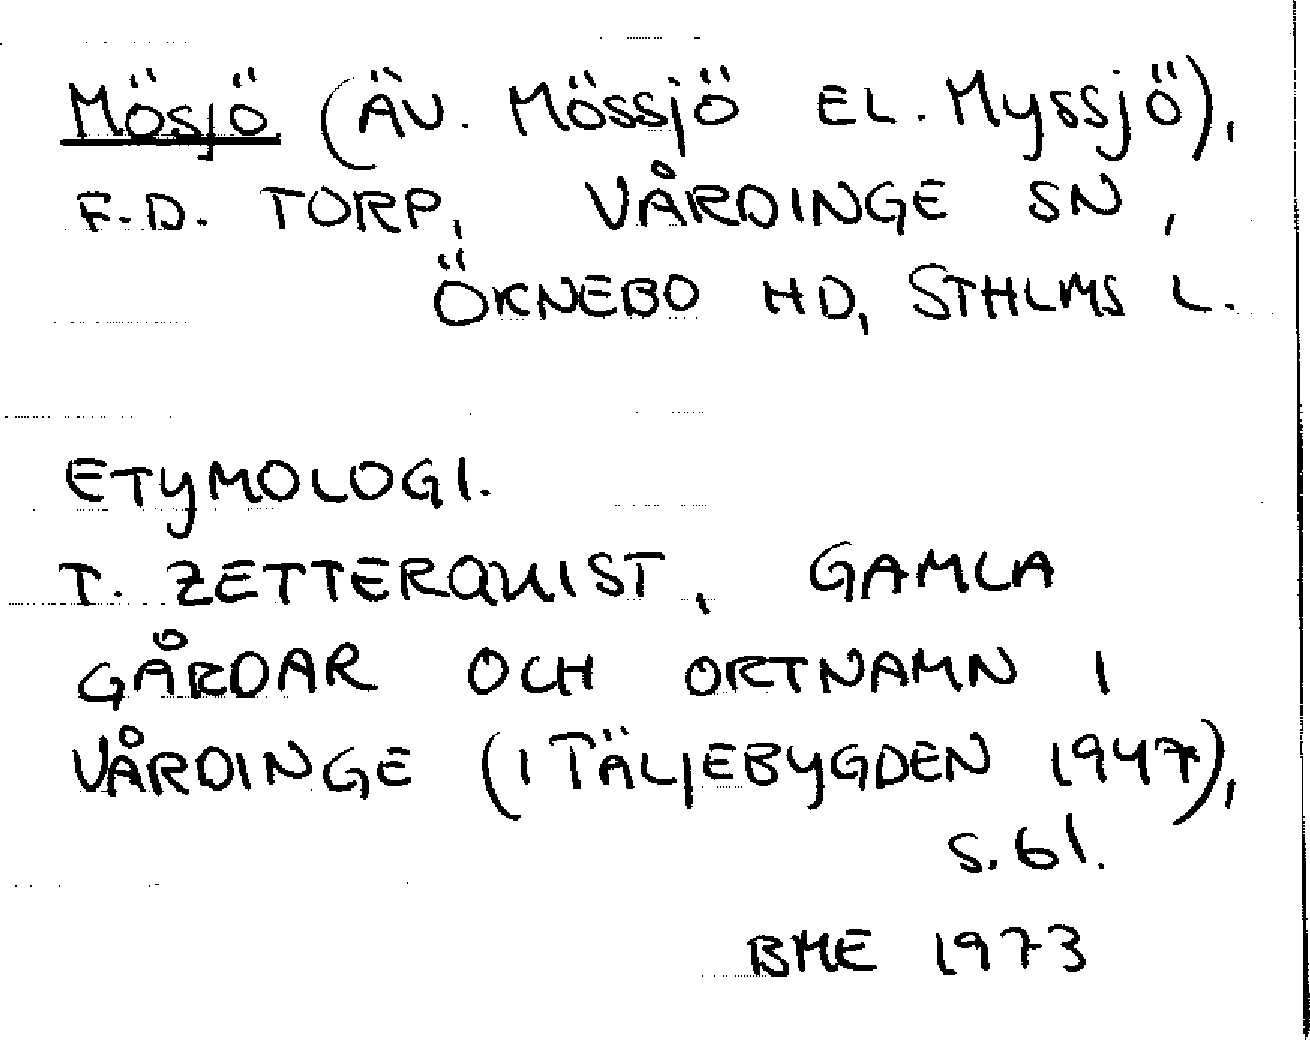 Mösjö (ÄV. Mössjö EL. Myssjö),
F.D. TORP, VÅRDINGE SN,
ÖKNEBO HD, STHLMS L.
ETYMOLOGI.
T. ZETTERQUIST, GAMLA
GÅRDAR OCH ORTNAMN I
VÅRDINGE (I TÄLJEBYGDEN 1947),
S. 61.
BME 1973